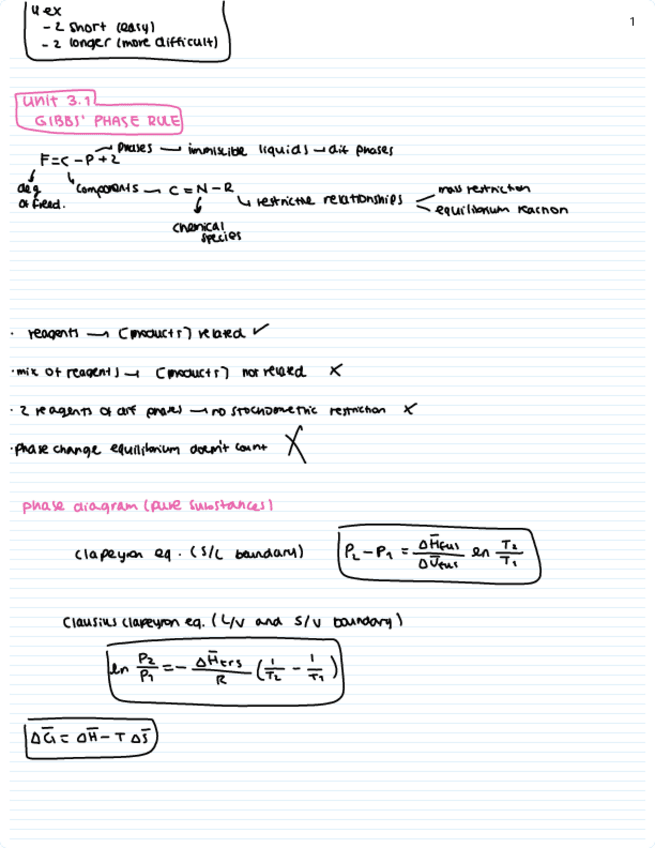 4 ex
- 2 short (easy)
- 2 longer (more difficult)
1
Unit 3.1
GIBBS' PHASE RULE
F=C-P+2
phases → immiscible liquids → dif phases
deg of freed.
components → C = N - R
chemical species
restrictive relationships
mass restriction
equilibrium reaction
· reagents → [products] related ✓
· mix of reagents → [products] not related ✗
· 2 reagents of dif phases → no stochiometric restriction ✗
· phase change equilibrium doesn't count ✗
phase diagram (pure substances)
Clapeyron eq. (S/L boundary) P₂ - P₁ = ΔH̄fus/ΔV̄fus ln T₂/T₁
Clausius clapeyron eq. (L/V and S/V boundary)
ln P₂/P₁ = - ΔH̄trs/R (1/T₂ - 1/T₁)
ΔḠ = ΔH̄ - T ΔS̄